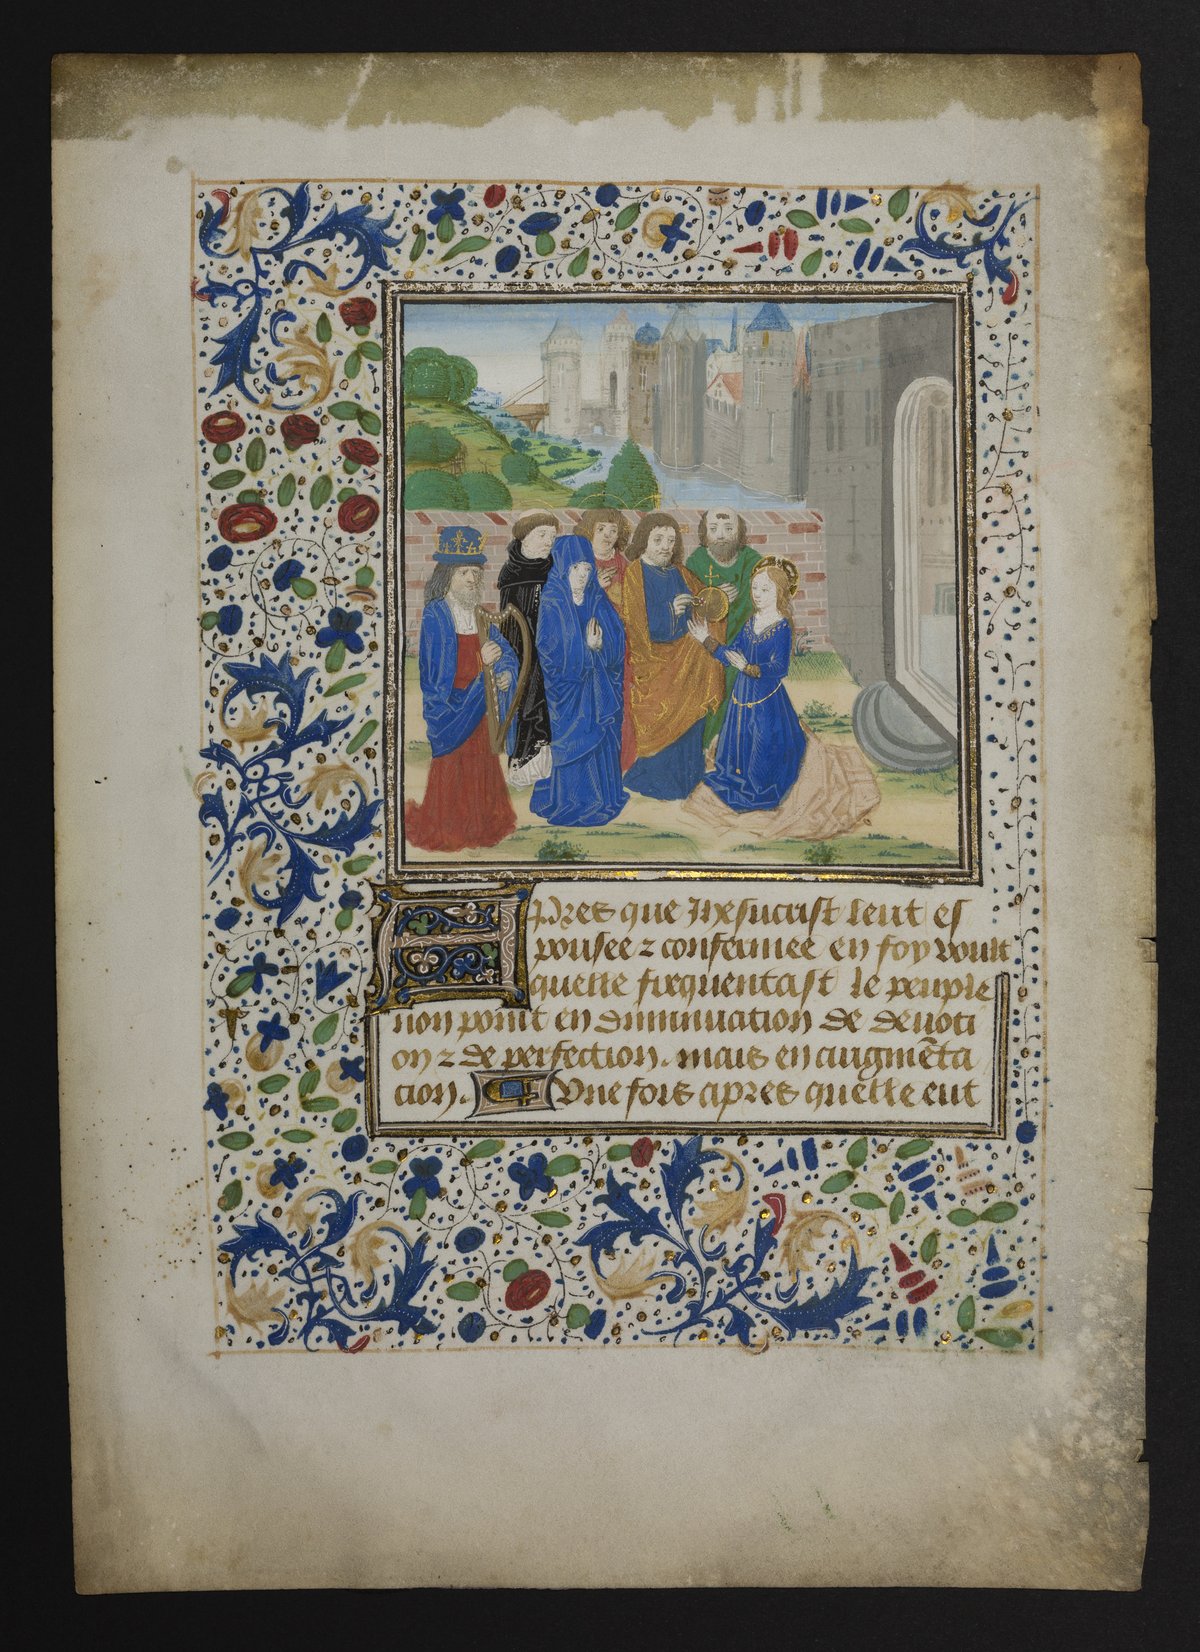 Apres que Ihesucrist leut es
pousee ⁊ confermee en foy voult
quelle frequentast le peuple
non point en diminucation de deuoti
on ⁊ de perfection. mais en augmēta
cion. Vne fois apres quelle eut